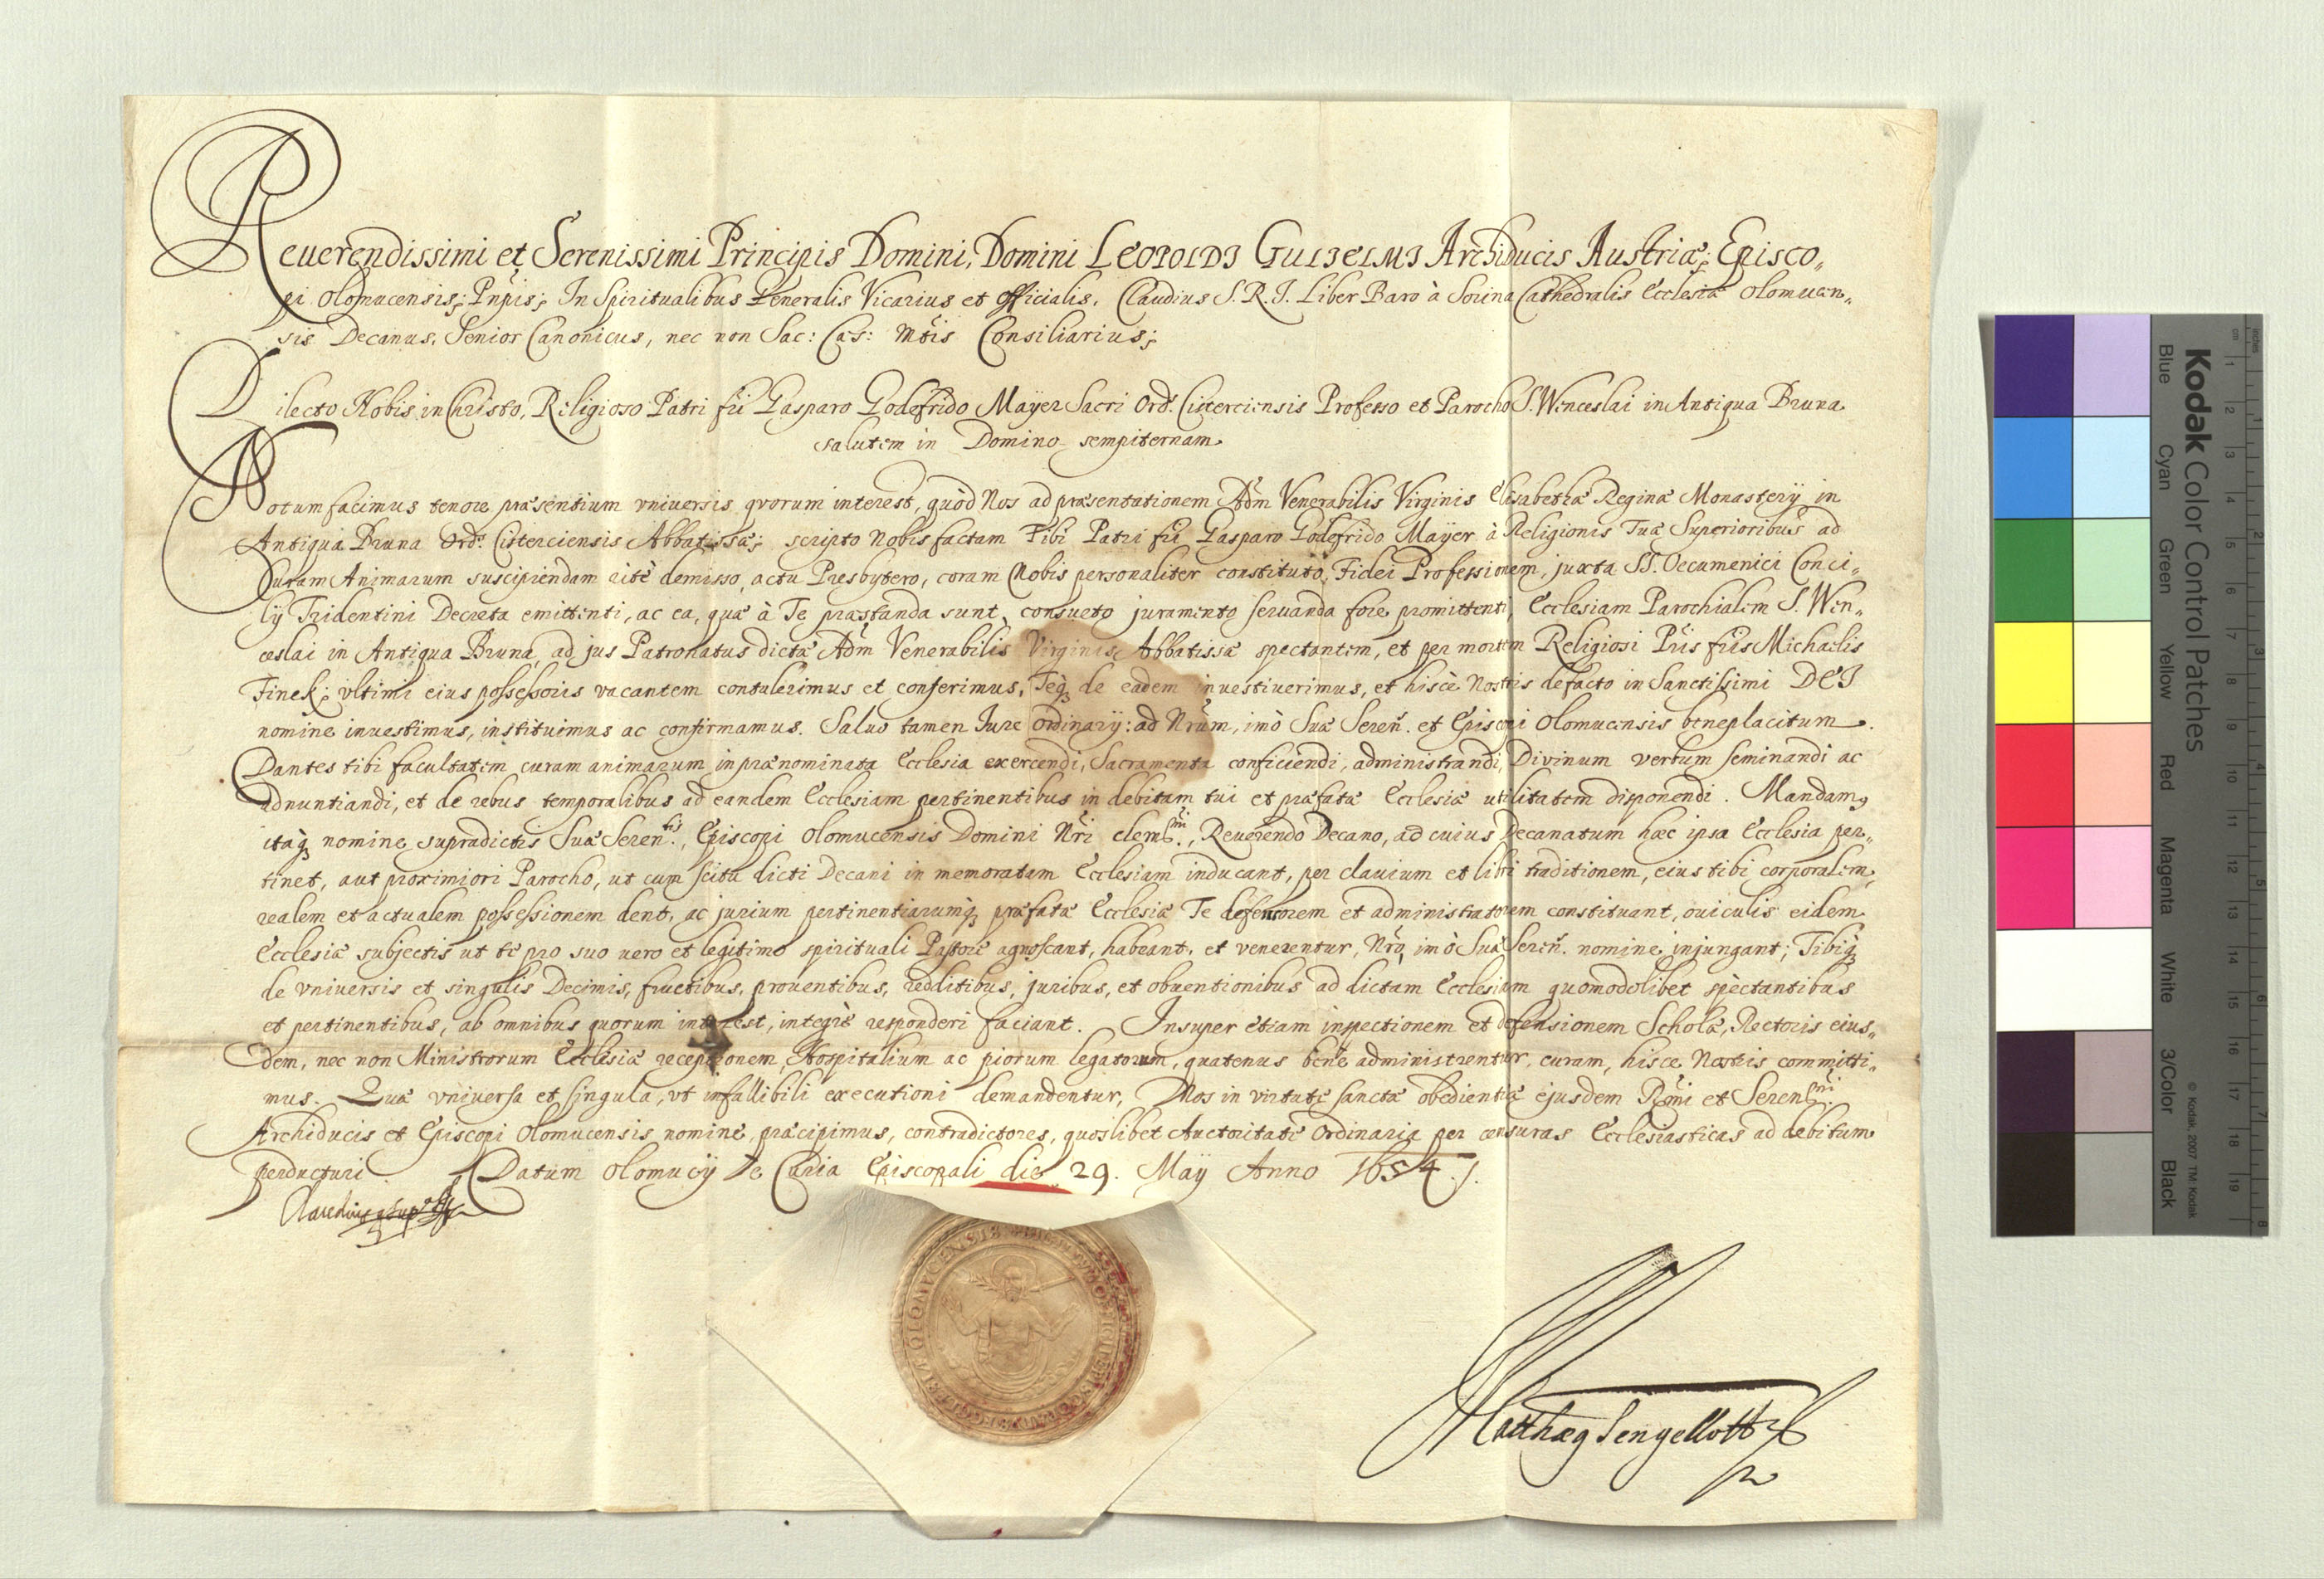 Reuerendissimi et Serenissimi Principis Domini, Domini LEOPOLDI GUILIELMI Archiducis Austriæ; Episco„
pi Olomucensis; Pnpis; In Spiritualibus Generalis Vicarius et Officialis, Claudius S. R. I. Liber Baro à Sorina Cathedralis Ecclesiæ Olomucen„
sis Decanus, Senior Canonicus, nec non Sac: Cæs: Mtis Consiliarius;
Dilecto Nobis in Christo, Religioso Patri fri Gasparo Godefrido Mayer Sacri Ord. Cisterciensis Professo et Parocho S. Wenceslai in Antiqua Bruna
salutem in Domino sempiternam.
Notum facimus tenore præsentium vniuersis quorum interest, quòd Nos ad præsentationem Adm Venerabilis Virginis Elisabethæ Reginæ Monasterÿ in
Antiqua Bruna Ord. Cisterciensis Abbatissæ; scripto nobis factam Tibi Patri fri Gasparo Godefrido Mayer à Religionis Tuæ Superioribus ad
Curam Animarum suscipiendam ritè demisso, actu Presbytero, coram Nobis personaliter constituto, Fidei Professionem, juxta SS. Oecumenici Conci„
lÿ Tridentini Decreta emittenti, ac ea, quæ à Te præstanda sunt, consueto juramento seruanda fore promittenti, Ecclesiam Parochialem S. Wen„
ceslai in Antiqua Bruna, ad jus Patronatus dictæ Adm Venerabilis Virginis Abbatissæ spectantem, et per mortem Religiosi Pris fris Michaelis
Finek; vltimi eius possessoris vacantem contulerimus et conferimus, Teq; de eadem inuestiuerimus, et hisce Nostris defacto in Sanctissimi DEI
nomine inuestimus, instituimus ac confirmamus. Saluo tamen Iure Ordinarÿ: ad Nrum, imò Suæ Seren. et Episcopi Olomucensis beneplacitum.
Dantes tibi facultatem curam animarum in prænominata Ecclesia exercendi, Sacramenta conficiendi, administrandi, Divinum verbum seminandi ac
adnuntiandi, et de rebus temporalibus ad eandem Ecclesiam pertinentibus in debitam tui et præfatæ Ecclesiæ utilitatem disponendi. Mandamꝰ
itaq; nomine supradictis Suæ Seren.tis, Episcopi Olomucensis Domini Nri clemss.mi, Reuerendo Decano, ad cuius Decanatum hæc ipsa Ecclesia per„
tinet, aut proximiori Parocho, ut cum scitu dicti Decani in memoratam Ecclesiam inducant, per clauium et libri traditionem, eius tibi corporalem,
realem et actualem possessionem dent, ac jurium pertinentiarumq; præfatæ Ecclesiæ Te defensorem et administratorem constituant, ouiculis eidem
Ecclesiæ subjectis ut te pro suo uero et legitimo spirituali Pastore agnoscant, habeant, et venerentur, Nro, imò Suæ Seren. nomine injungant; Tibiq;
de vniuersis et singulis Decimis, fructibus, prouentibus, redditibus, juribus, et obuentionibus ad dictam Ecclesiam quomodolibet spèctantibus
et pertinentibus, ab omnibus quorum interest, integrè responderi faciant. Insuper etiam inspectionem et defensionem Scholæ, Rectoris eius„
dem, nec non Ministrorum Ecclesiæ receptionem, Hospitalium ac piorum legatorum, quatenus benè administrentur, curam, hisce Nostris committi„
mus. Quæ vniuersa et singula, vt infallibili executioni demandentur, Nos in virtute sanctæ obedientiæ ejusdem Rmi et Serenss.mi
Archiducis et Episcopi Olomucensis nomine, præcipimus, contradictores, quoslibet Auctoritate Ordinaria per censuras Ecclesiasticas ad debitum
perducturi. Datum Olomucÿ De Curia Episcopali die 29. Maÿ Anno 1654.
Claudius
Kodak Color Control Patches
Blue Cyan Green Yellow Red Magenta White 3/Color Black
© Kodak, 2007 TM: Kodak